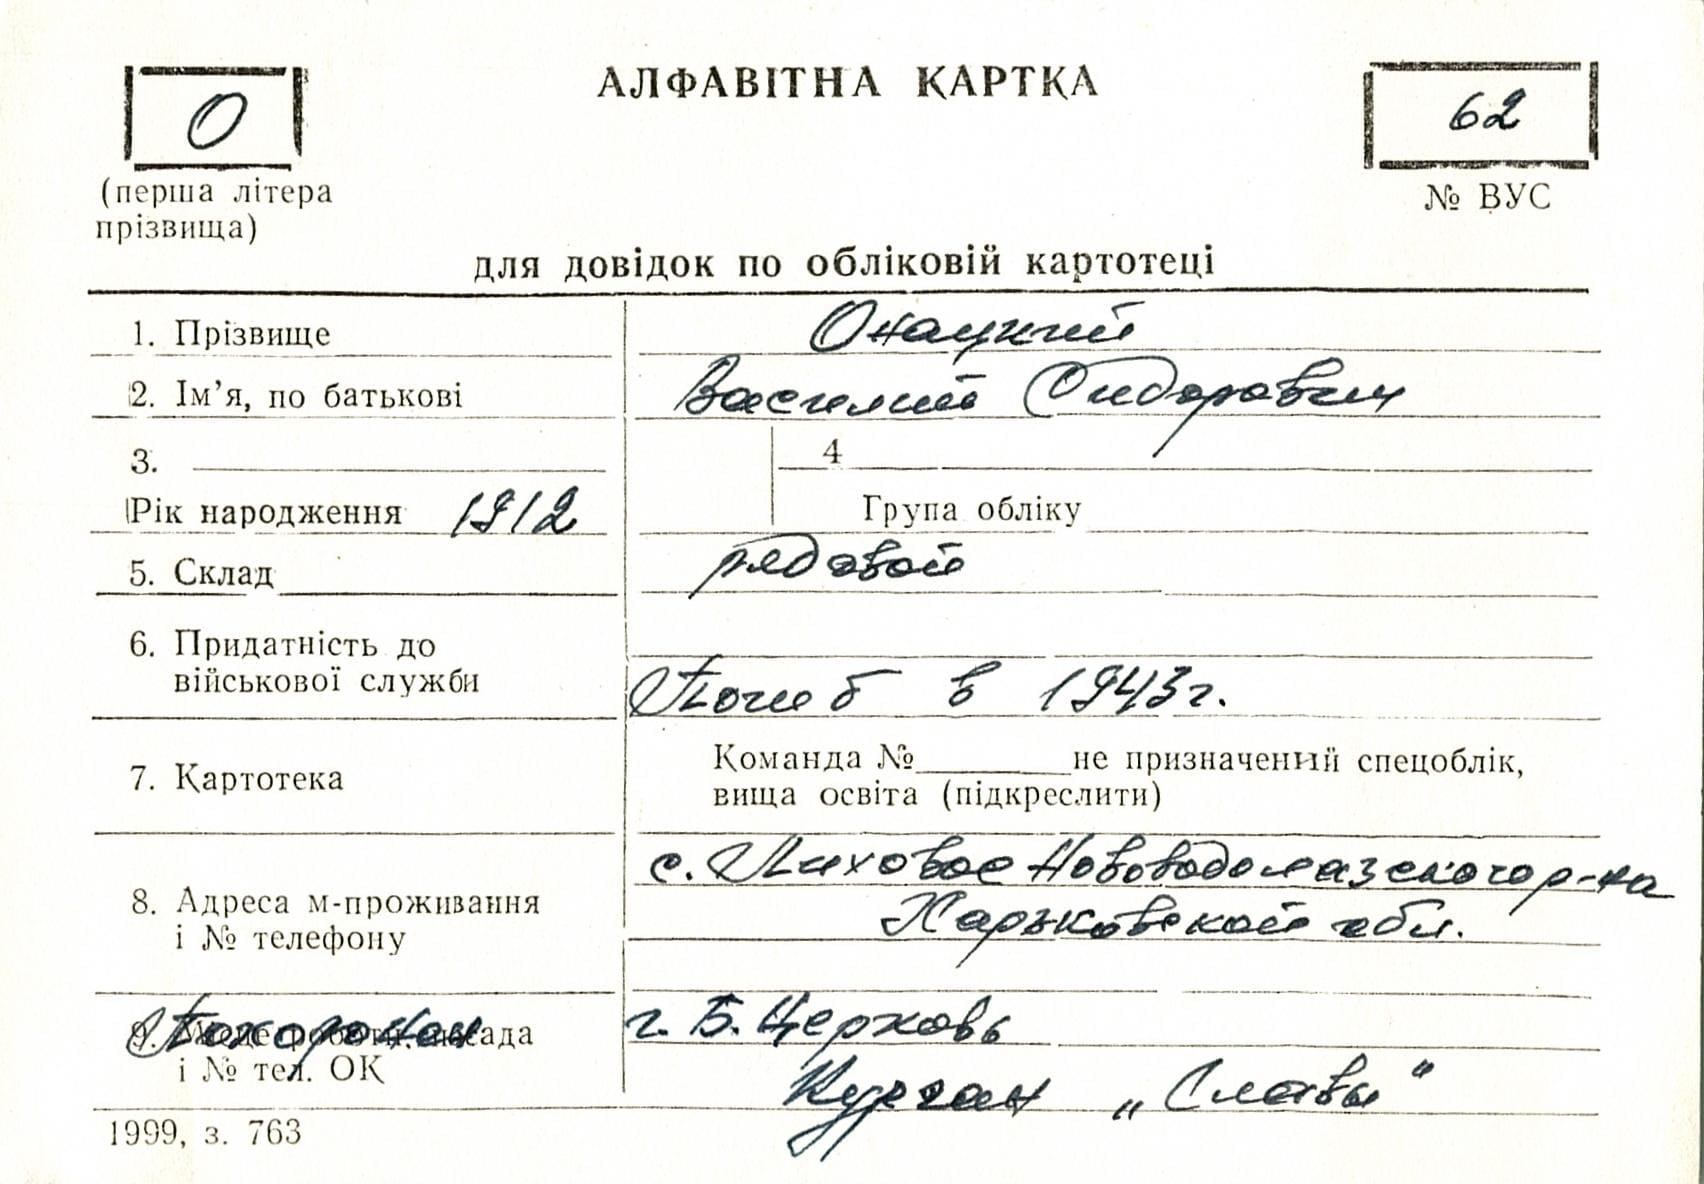 О
АЛФАВІТНА КАРТКА
62
(перша літера
прізвища)
№ ВУС
для довідок по обліковій картотеці
1. Прізвище Онацкий
2. Ім’я, по батькові Василий Сидорович
3. 4
Рік народження 1912 Група обліку
5. Склад рядовой
6. Придатність до
військової служби Погиб в 1943 г.
7. Картотека Команда № не призначений спецоблік,
вища освіта (підкреслити)
с. Лиховое Нововодолазского р-на
8. Адреса м-проживання Харьковской обл.
і № телефону
9. Похоронен посада г. Б. Церковь
і № тел. ОК Курган „Славы“
1999, з. 763